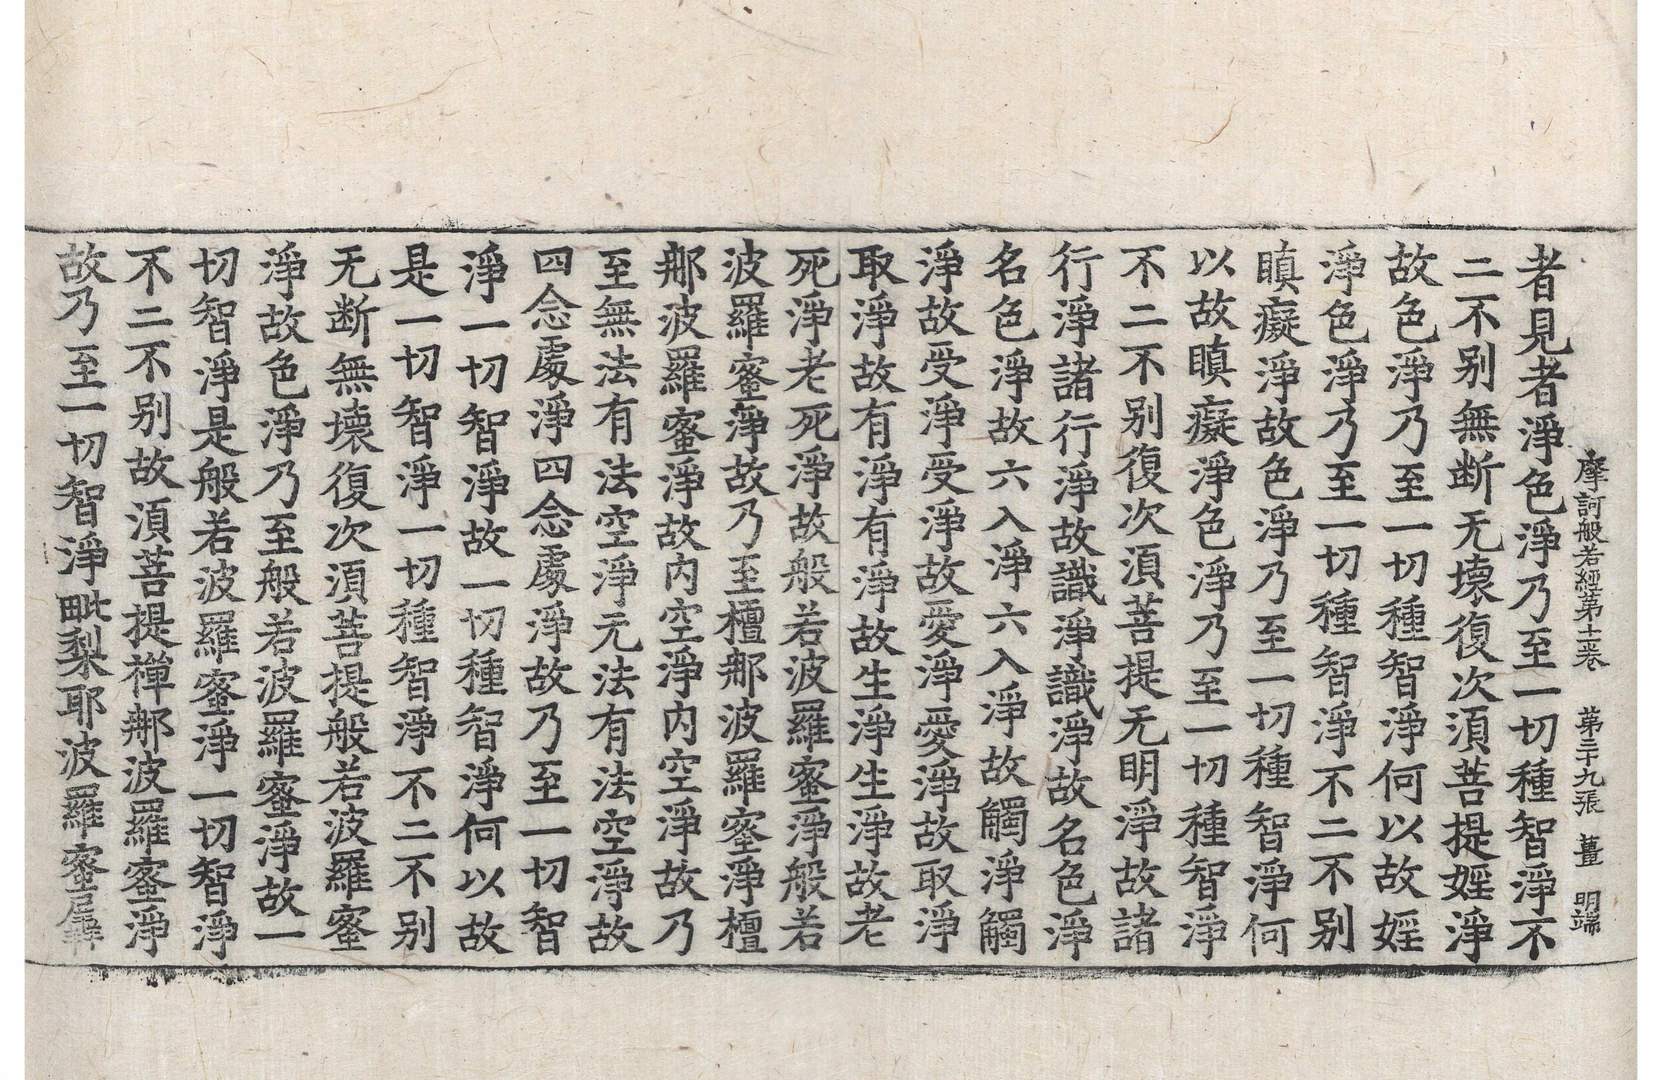 摩訶般若經第十二卷　第二十九張　薑　明端
者見者淨色淨乃至一切種智淨不
二不别無断无壞復次湏菩提婬淨
故色淨乃至一切種智淨何以故婬
淨色淨乃至一切種智淨不二不别
瞋癡淨故色淨乃至一切種智淨何
以故瞋癡淨色淨乃至一切種智淨
不二不别復次湏菩提无明淨故諸
行淨諸行淨故識淨識淨故名色淨
名色淨故六入淨六入淨故觸淨觸
淨故受淨受淨故愛淨愛淨故取淨
取淨故有淨有淨故生淨生淨故老
死淨老死淨故般若波羅蜜淨般若
波羅蜜淨故乃至檀那波羅蜜淨檀
那波羅蜜淨故内空淨内空淨故乃
至無法有法空淨无法有法空淨故
四念處淨四念處淨故乃至一切智
淨一切智淨故一切種智淨何以故
是一切智淨一切種智淨不二不别
无断無壞復次湏菩提般若波羅蜜
淨故色淨乃至般若波羅蜜淨故一
切智淨是般若波羅蜜淨一切智淨
不二不别故湏菩提禪那波羅蜜淨
故乃至一切智淨毗梨耶波羅蜜羼